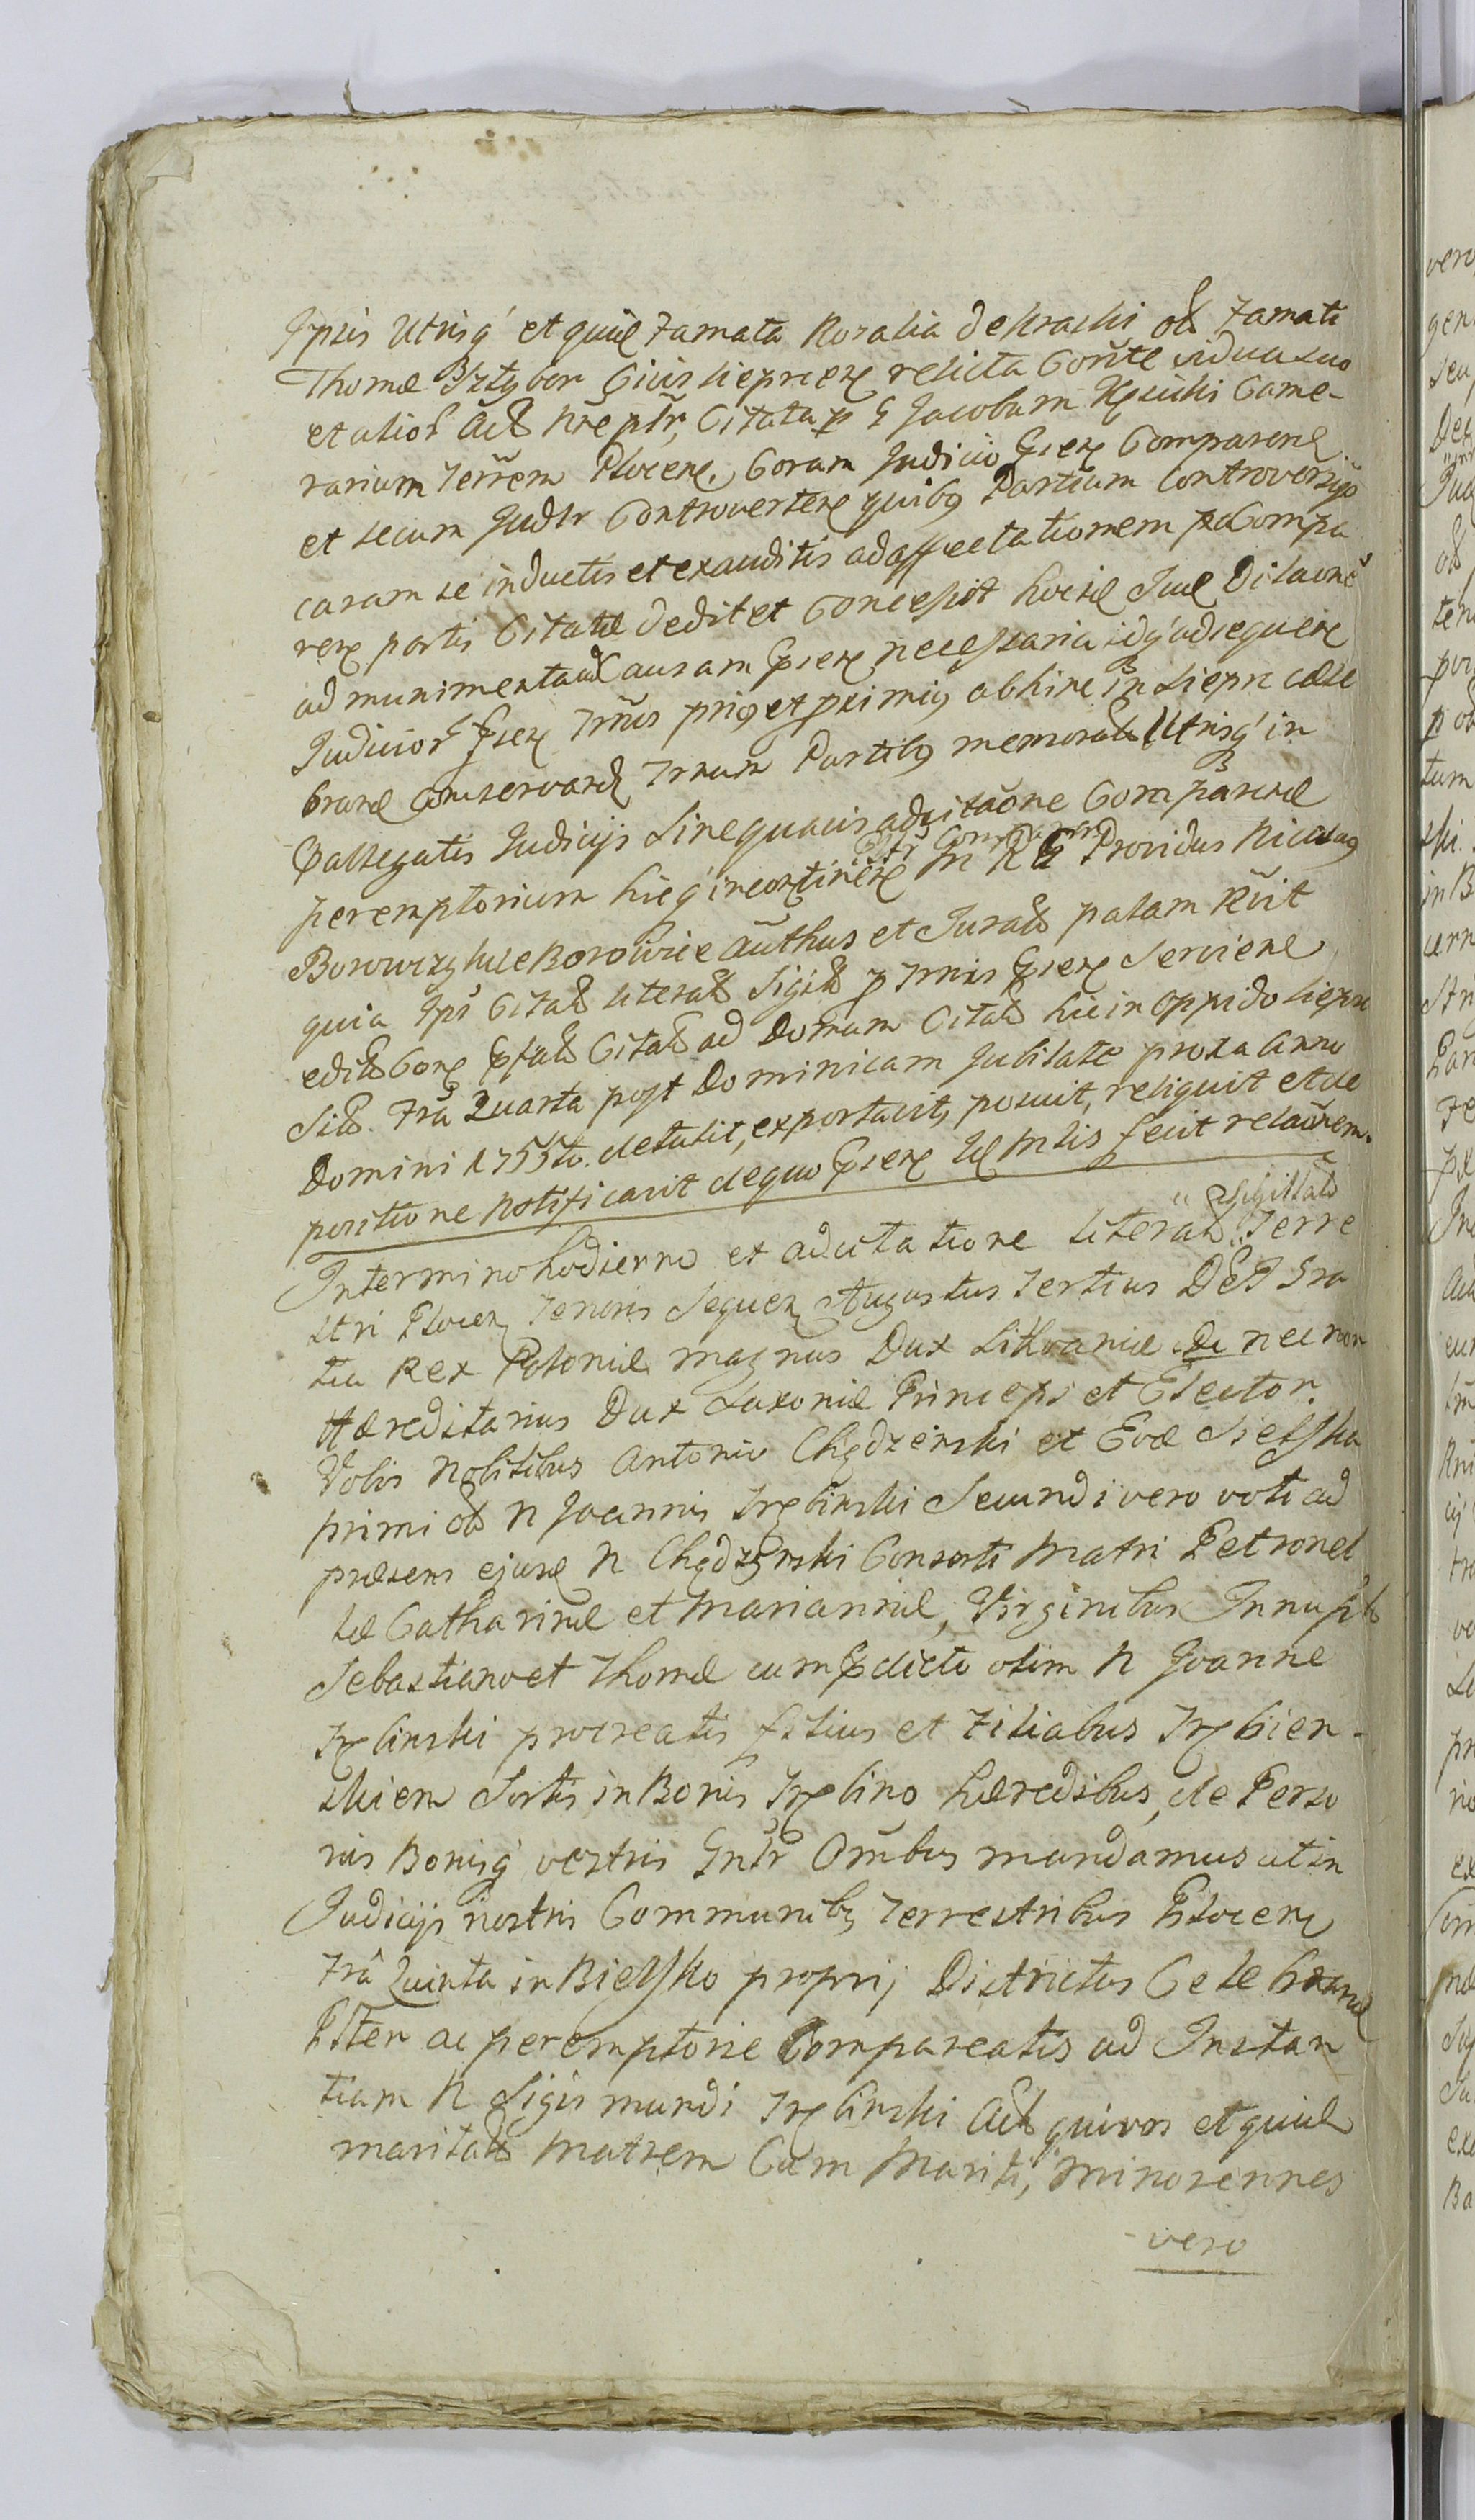 Ipsis Utrisq' et quidē Famata Rozalia de Kraski olȝ Famati
Thomæ Prztybor Civis Sieprcens relicta Conte vidua suo
et alior Actȝ Nrē pttr, Citata p G Jacobum Kęsicki Came-
rarium Terrēm Plocens. Coram Judicio pnsens Comparend
et secum Judtr Controvertens quibȝ Partium Controversijs
caram se inductis et exauditis ad affectationem Compa
rens partis Citatæ dedit et Concessit huicse Suæ Dilaonē
ad munimenta ad Causam pnsens necessaria idq' ad sequens
Judicior pnsens Trnis priȝ et proximiȝ abhinc in Sieprc cæle
brand Conservand Trnum Partibȝ memoratȝ Utrisq' in
præallegatis Judicijs Sine quavis adcitaone Comparend
peremptorium hicq' incontinens Ptr Comparens In R G Providus Nicolaȝ
Borowczyk de Borowice authus et Juratȝ palam Rūit
quia Ips Citatȝ literatȝ Sigitȝ p Trnis pnsens Serviens
editȝ Cons pstatȝ Citatȝ ad Domum Citatȝ hic in oppido Sieprc
Sitȝ. Fra Quarta post Dominicam Jubilate proxa Anno
Domini 1755to. detulit, exportavit, posuit, reliquit et de
positione notificavit de quo pnsens Mtis fecit relaonem.
In termino hodierno ex adcitatione literatȝ " Sigillatȝ " Terre
stri Plocens Tenoris Sequens Augustus Tertius DEI Gra
tia Rex Poloniæ magnus Dux Lithvaniæ &c necnon
Hæreditarius Dux Saxoniæ Princeps et Elector.
Vobis Nobilibus Antonio Chędzeński et Evæ Sielska
primi olȝ N Joannis Trębinski Secundi vero voti ad
præsens ejusd N Chędzynski Consorti Matri Petronel
læ Catharinæ et Mariannæ, Virginibus Innuptȝ
Sebastiano et Thomæ cum prædicto olim N Joanne
Trębinski procreatis filius et Filiabus Trębien-
skiem Sortis in Bonis Trębino hæredibus, de Perso
nis Bonisq' vestris Gntr Omībus mandamus ut in
Judicijs nostris Communibȝ Terrestribus Plocens
Fra Quinta in Bielsko proprij Districtus Celebrand
Ptter ac peremptorie Compareatis ad Instan
tiam N Sigismundi Trębinski Actȝ qui vos et quid
maritatȝ Matrem Cum Marito, minorennes
- vero